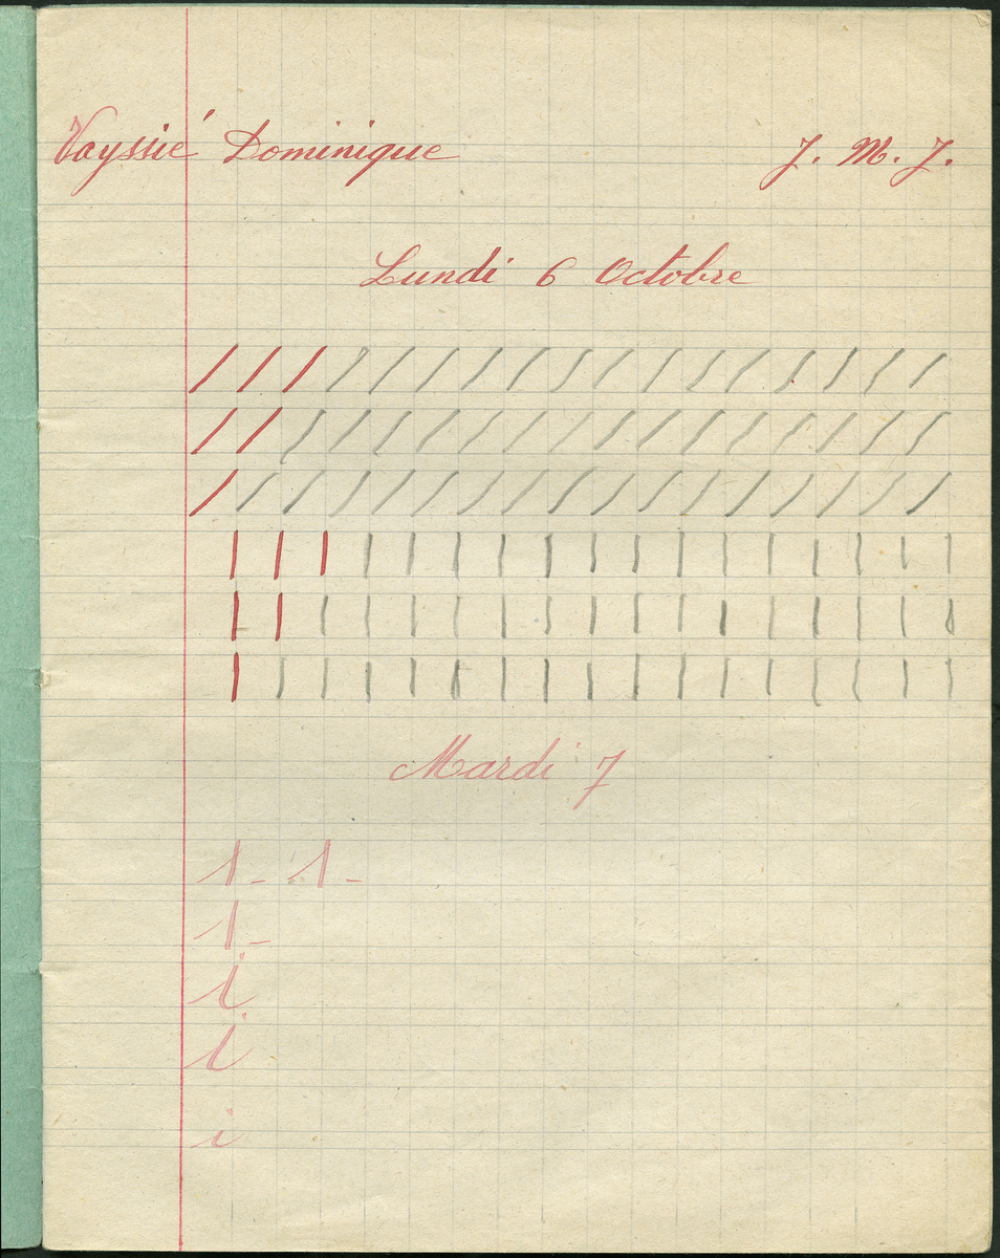 Vayssié Dominique J. M. J.
Lundi 6 Octobre
Mardi 7
1 - 1 -
1 -
i
i
i